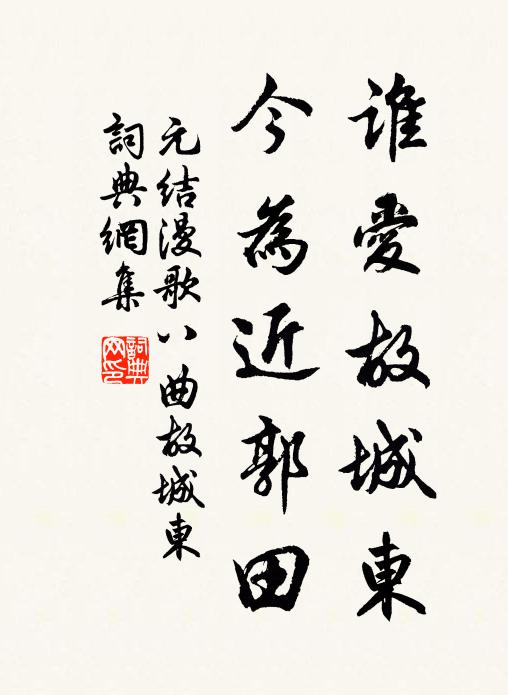 誰愛故城東
今為近郭田
元結漫歌八曲故城東
詞典網集
詞典
网印